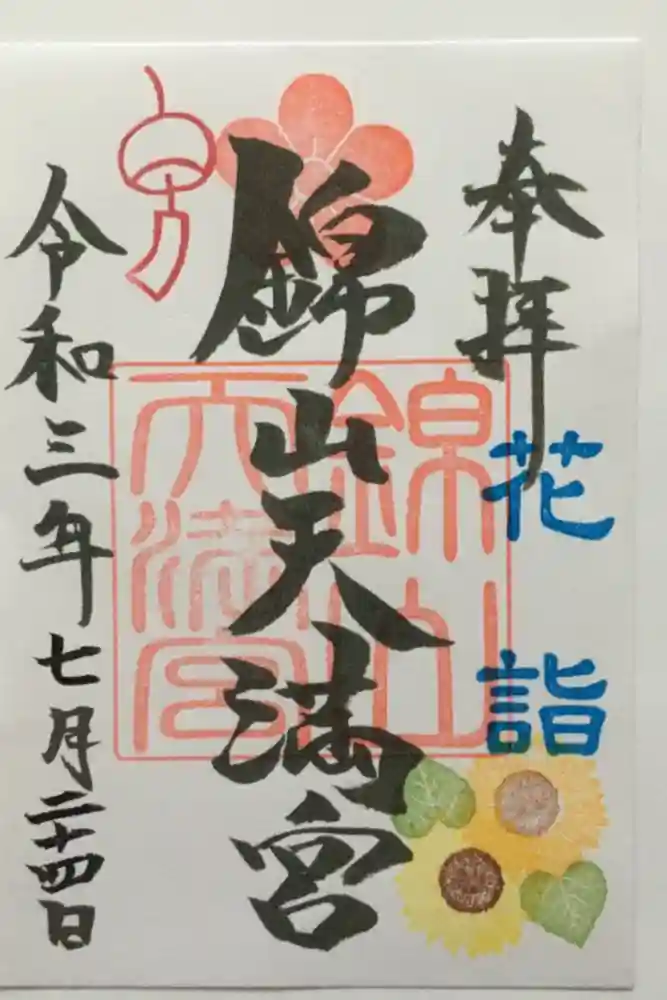 奉拝
花詣
錦山天満宮
錦山
天満宮
令和三年七月二十四日